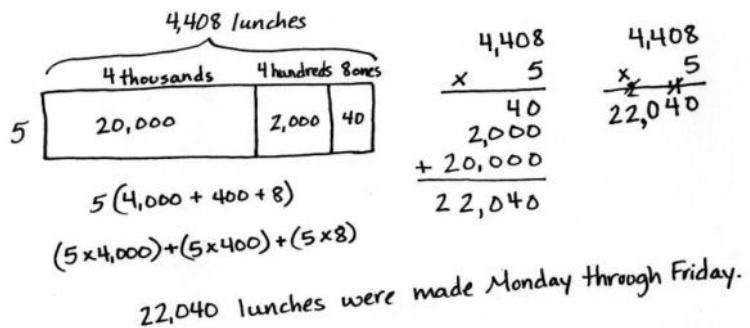 4,408 lunches
4 thousands 4 hundreds 8 ones
5 20,000 2,000 40
5(4,000 + 400 + 8)
(5 x 4,000) + (5 x 400) + (5 x 8)
4,408
x 5
40
2,000
+ 20,000
22,040
4,408
x 5
2 4
22,040
22,040 lunches were made Monday through Friday.